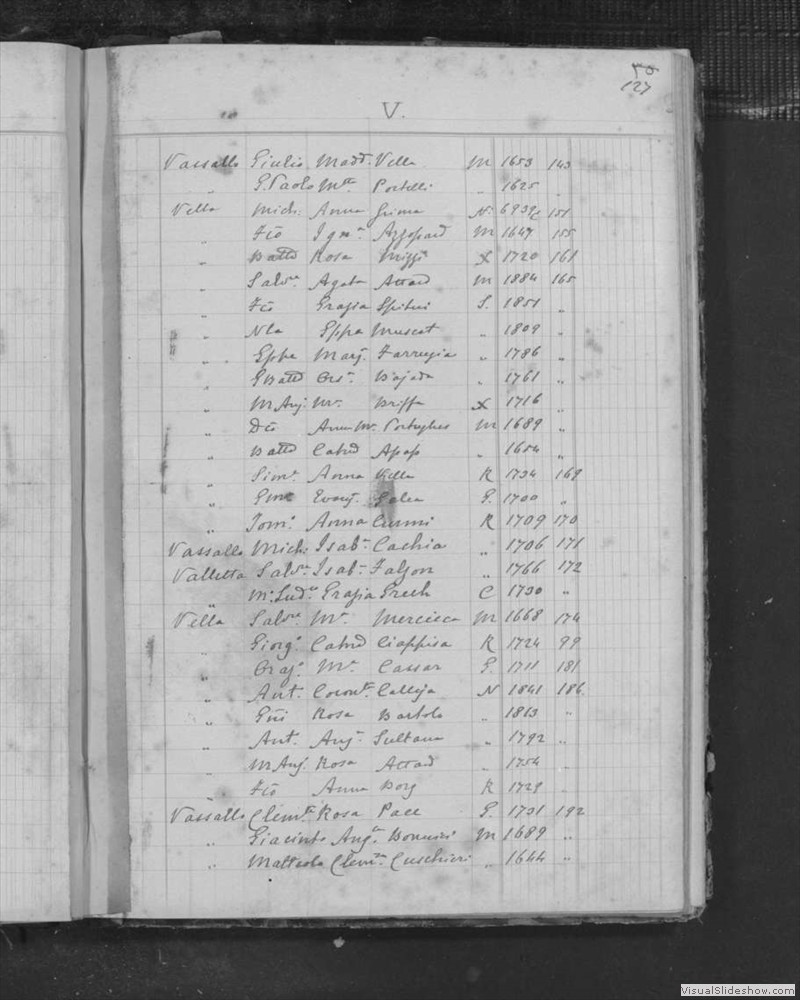 127
V.
Vassallo Giulio Madd. Vella M 1653 143
" G. Paolo Mª Portelli " 1625 "
Vella Mich: Anna Grima N. 151
" Fco Ignª Azzopard M 1647 155
" Batta Rosa X 1720 161
" Salvre Agata Attard M 1884 165
" Fco Grazia Spiteri S. 1851 "
" Nla Eppa Muscat " 1809 "
" Eppe Marj. Farrugia " 1786 "
" GBatta Orsª Bajada " 1761 "
" M Anj. Mª Briffa X 1716 "
" Dco Anna Mª Portughes M 1689 "
" Batta Catnd Apap " 1654 "
" Simª Anna Vella R 1734 169
" Gme Evanj. Galea G. 1700 "
" Tomº Anna Curmi R 1709 170
Vassallo Mich. Isabª Cachia " 1706 171
Valletta Salvre Isabª Falzon " 1766 172
" M: Ludº Grazia Grech C 1730 "
Vella Salvre Mª Mercieca M 1668 174
" Giorgº Catnd Ciappisa R 1724 99
" Grajº Mª Cassar G. 1711 181
" Ant. Coronta Calleja N 1841 186
" Gni Rosa Bartolo " 1813 "
" Ant. Anj. Sultana " 1792 "
" M Anj. Rosa Attard " 1754 "
" Fco Anna Borg R 1729 "
Vassallo Clemte Rosa Pace G. 1731 192
" Giacinto Angca Bonnici M 1689 "
" Matteolo Clemza Cuschieri " 1644 "
VisualSlideshow.com